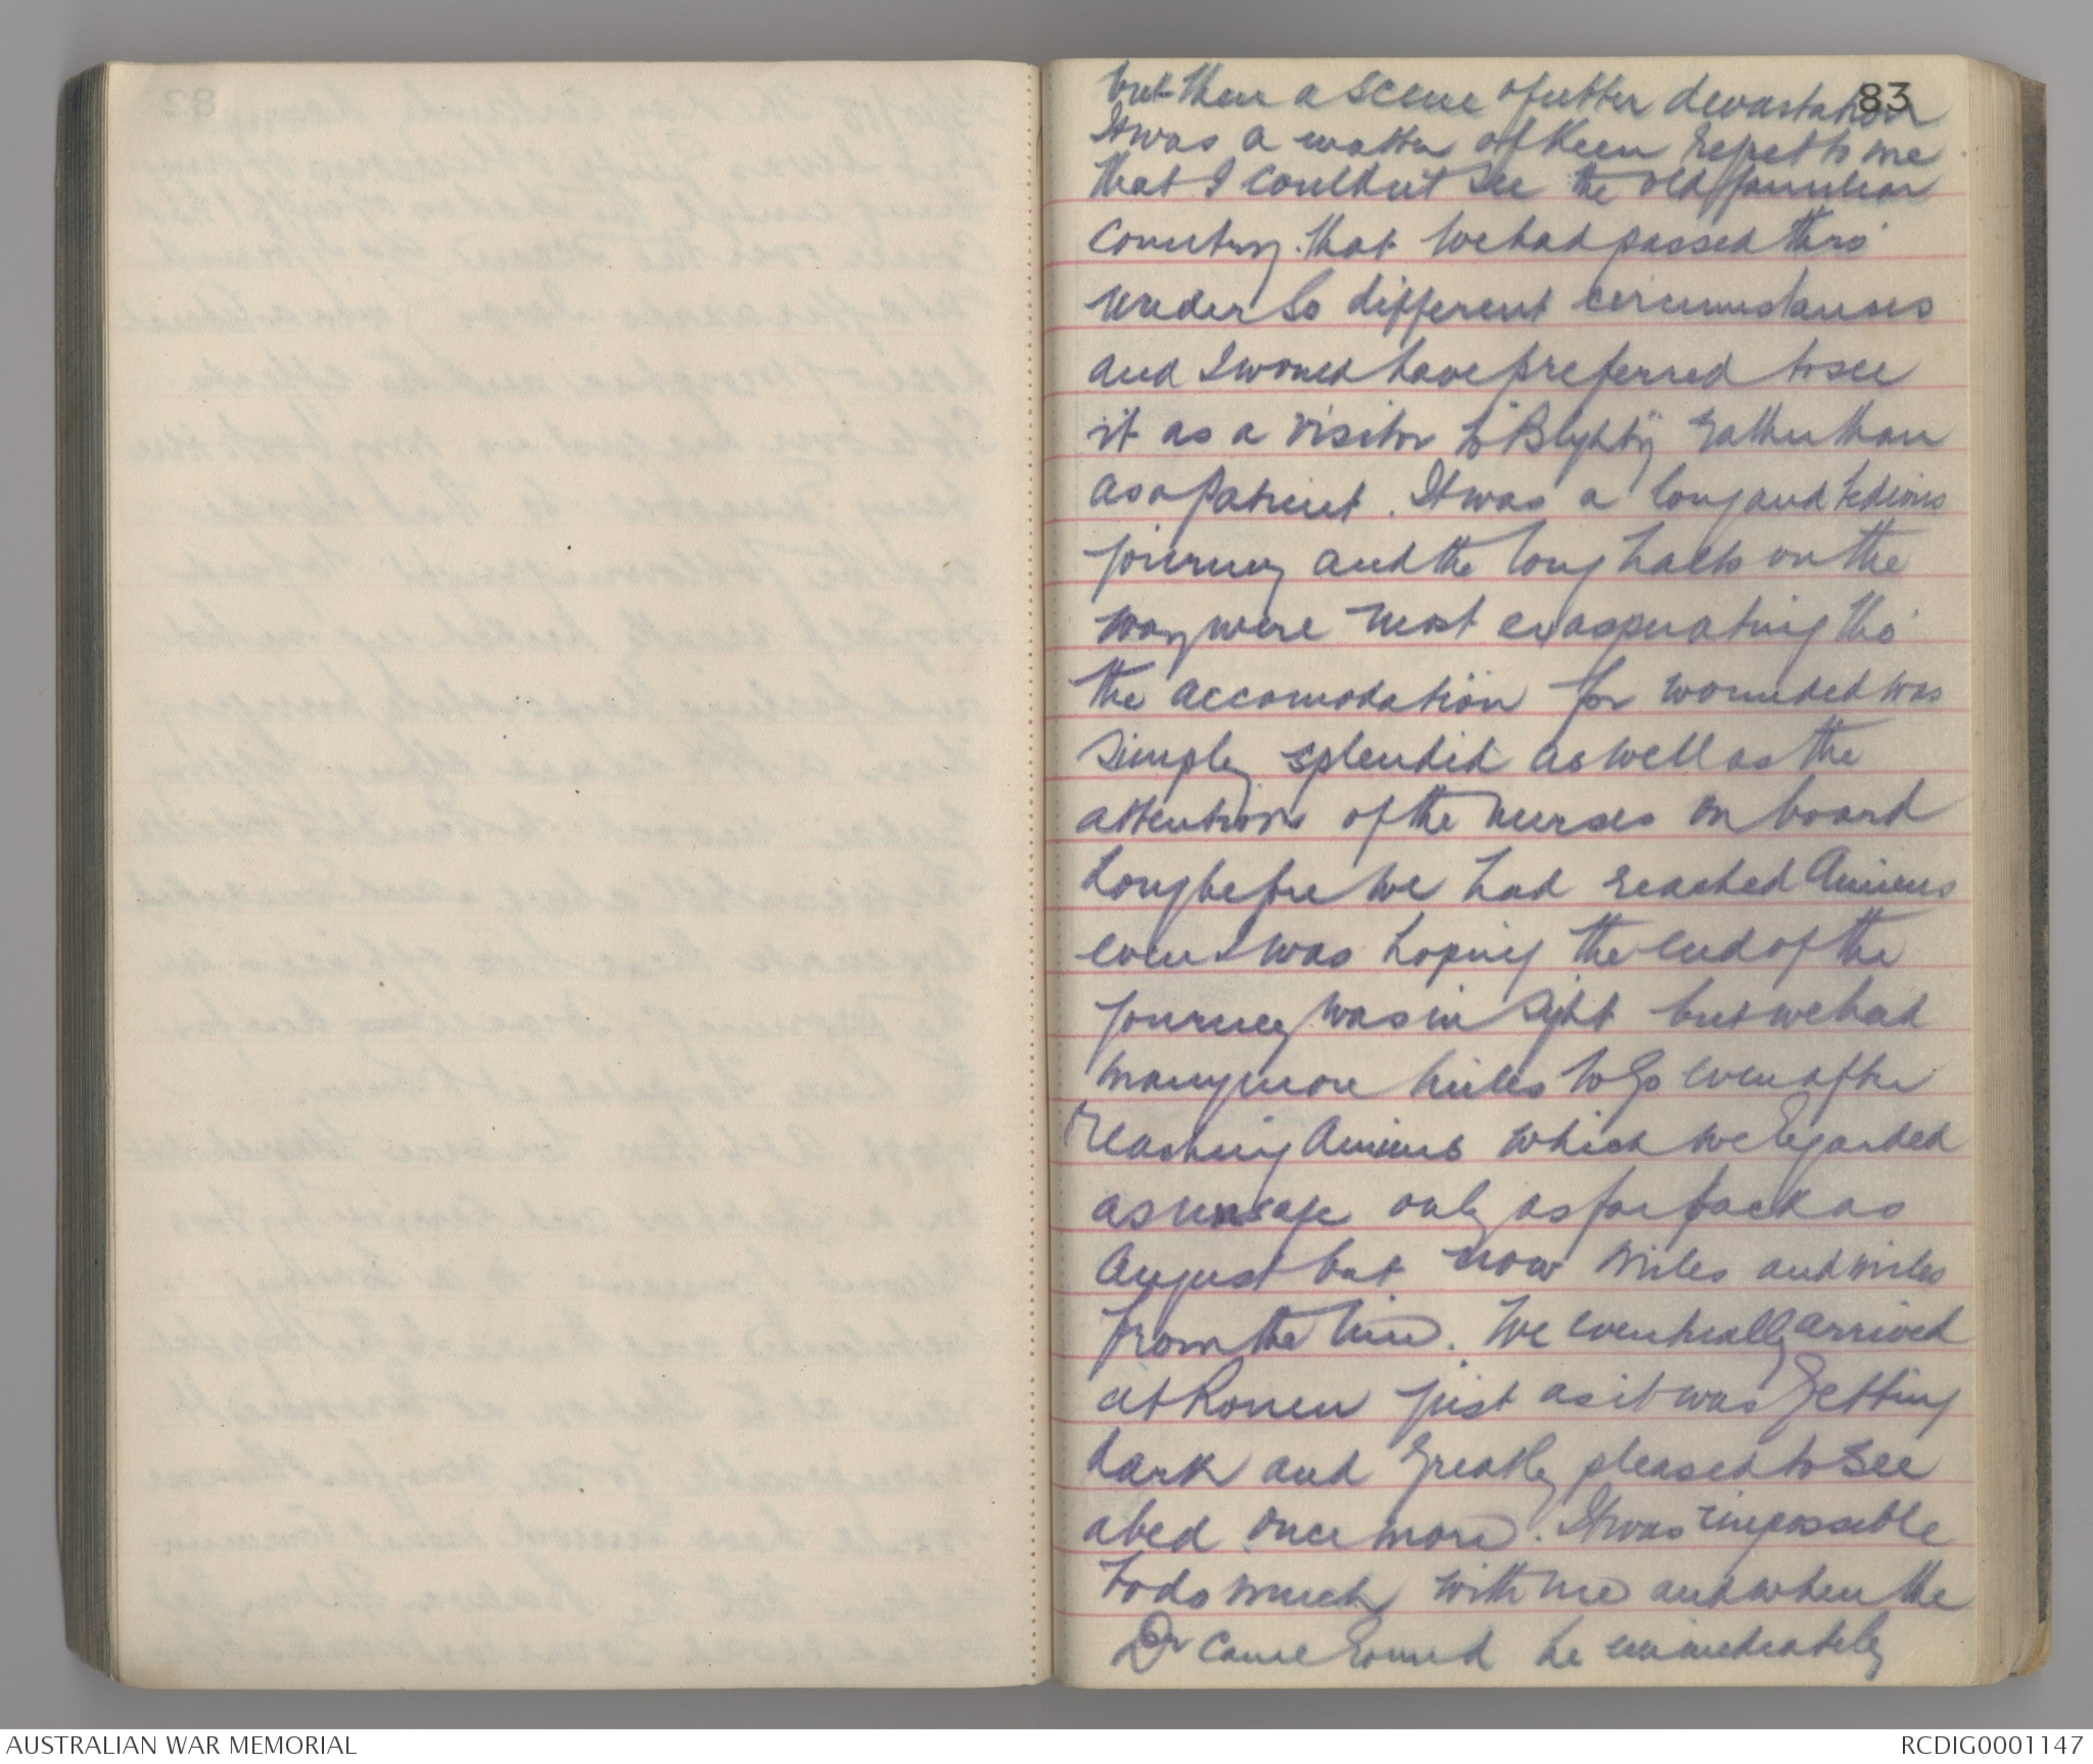 83
but then a scene of utter devastation
It was a matter of keen regret to me
that I couldn't see the old familiar
country that we had passed thro'
under so different circumstances
and I would have preferred to see
it as a visitor to "Blighty" rather than
as a patient. It was a long and tedious
journey and the long halts on the
way were most exasperating tho'
the accomodation for wounded was
simply splendid as well as the
attention of the nurses on board
Long before we had reached Amiens
even I was hoping the end of the
journey was in sight but we had
many more miles to go even after
reaching Amiens which we regarded
as unsafe only as far back as
August but now miles and miles
from the line. We eventually arrived
at Rouen just as it was getting
dark and greatly pleased to see
a bed once more. It was impossible
to do much with me and when the
Dr came round he immediately
AUSTRALIAN WAR MEMORIAL
RCDIG0001147